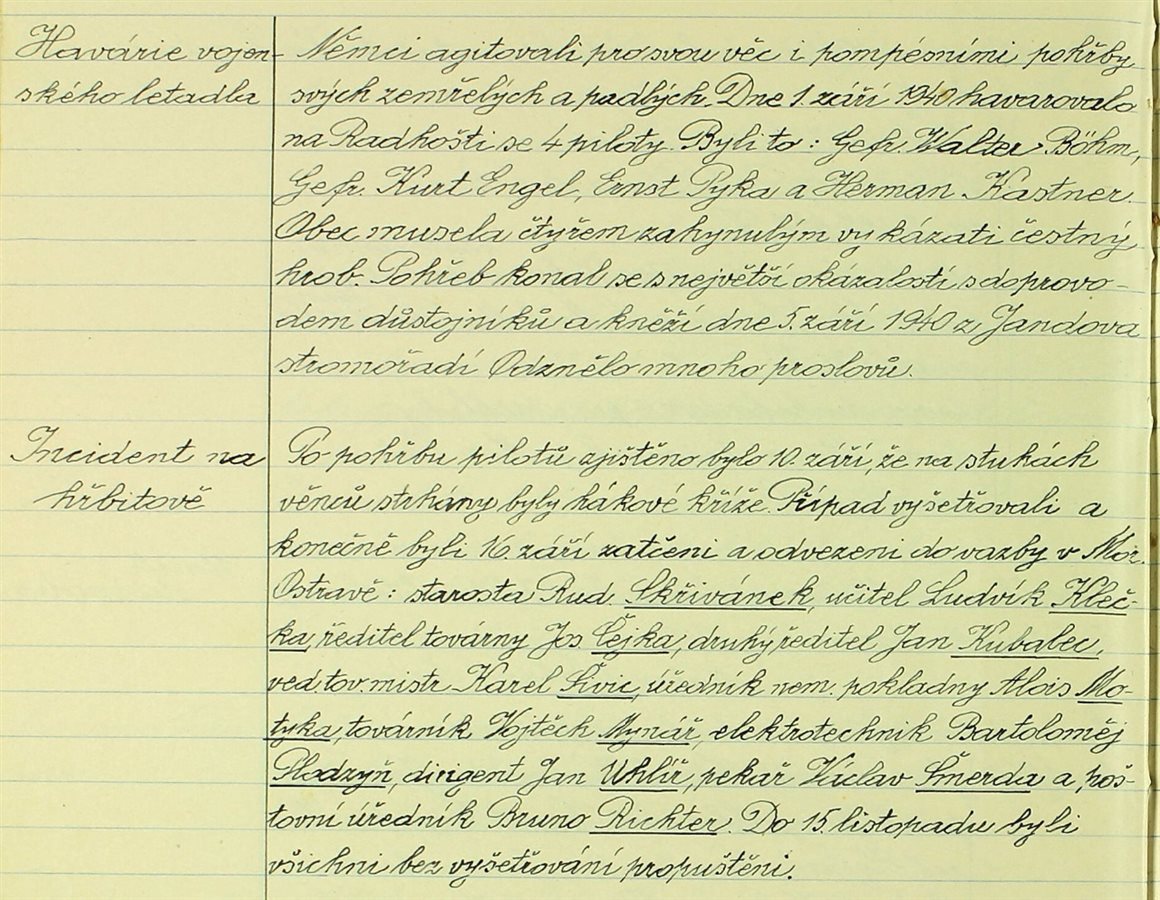 Havárie vojen-
ského letadla
Němci agitovali pro svou věc i pompésními pohřby
svých zemřelých a padlých. Dne 1. září 1940 havarovalo
na Radhošti se 4 piloty. Byli to: Gefr. Walter Böhm,
Gefr. Kurt Engel, Ernst Pyka a Herman Kastner.
Obec musela čtyřem zahynulým vykázati čestný
hrob. Pohřeb konal se s největší okázalostí s doprovo-
dem důstojníků a kněží dne 5. září 1940 z Jandova
stromořadí Odznělo mnoho proslovů.
Incident na
hřbitově
Po pohřbu pilotů zjištěno bylo 10. září, že na stuhách
věnců strhány byly hákové kříže. Případ vyšetřovali a
konečně byli 16. září zatčeni a odvezeni do vazby v Mor.
Ostravě: starosta Rud. Skřivánek, učitel Ludvík Kleč-
ka, ředitel továrny Jos. Čejka, druhý ředitel Jan Kubalec,
ved. tov. mistr Karel Sivic, úředník nem. pokladny Alois Mo-
tyka, továrník Vojtěch Mynář, elektrotechnik Bartoloměj
Plodzyň, dirigent Jan Uhlíř, pekař Václav Šmerda a poš-
tovní úředník Bruno Richter. Do 15. listopadu byli
všichni bez vyšetřování propuštěni.